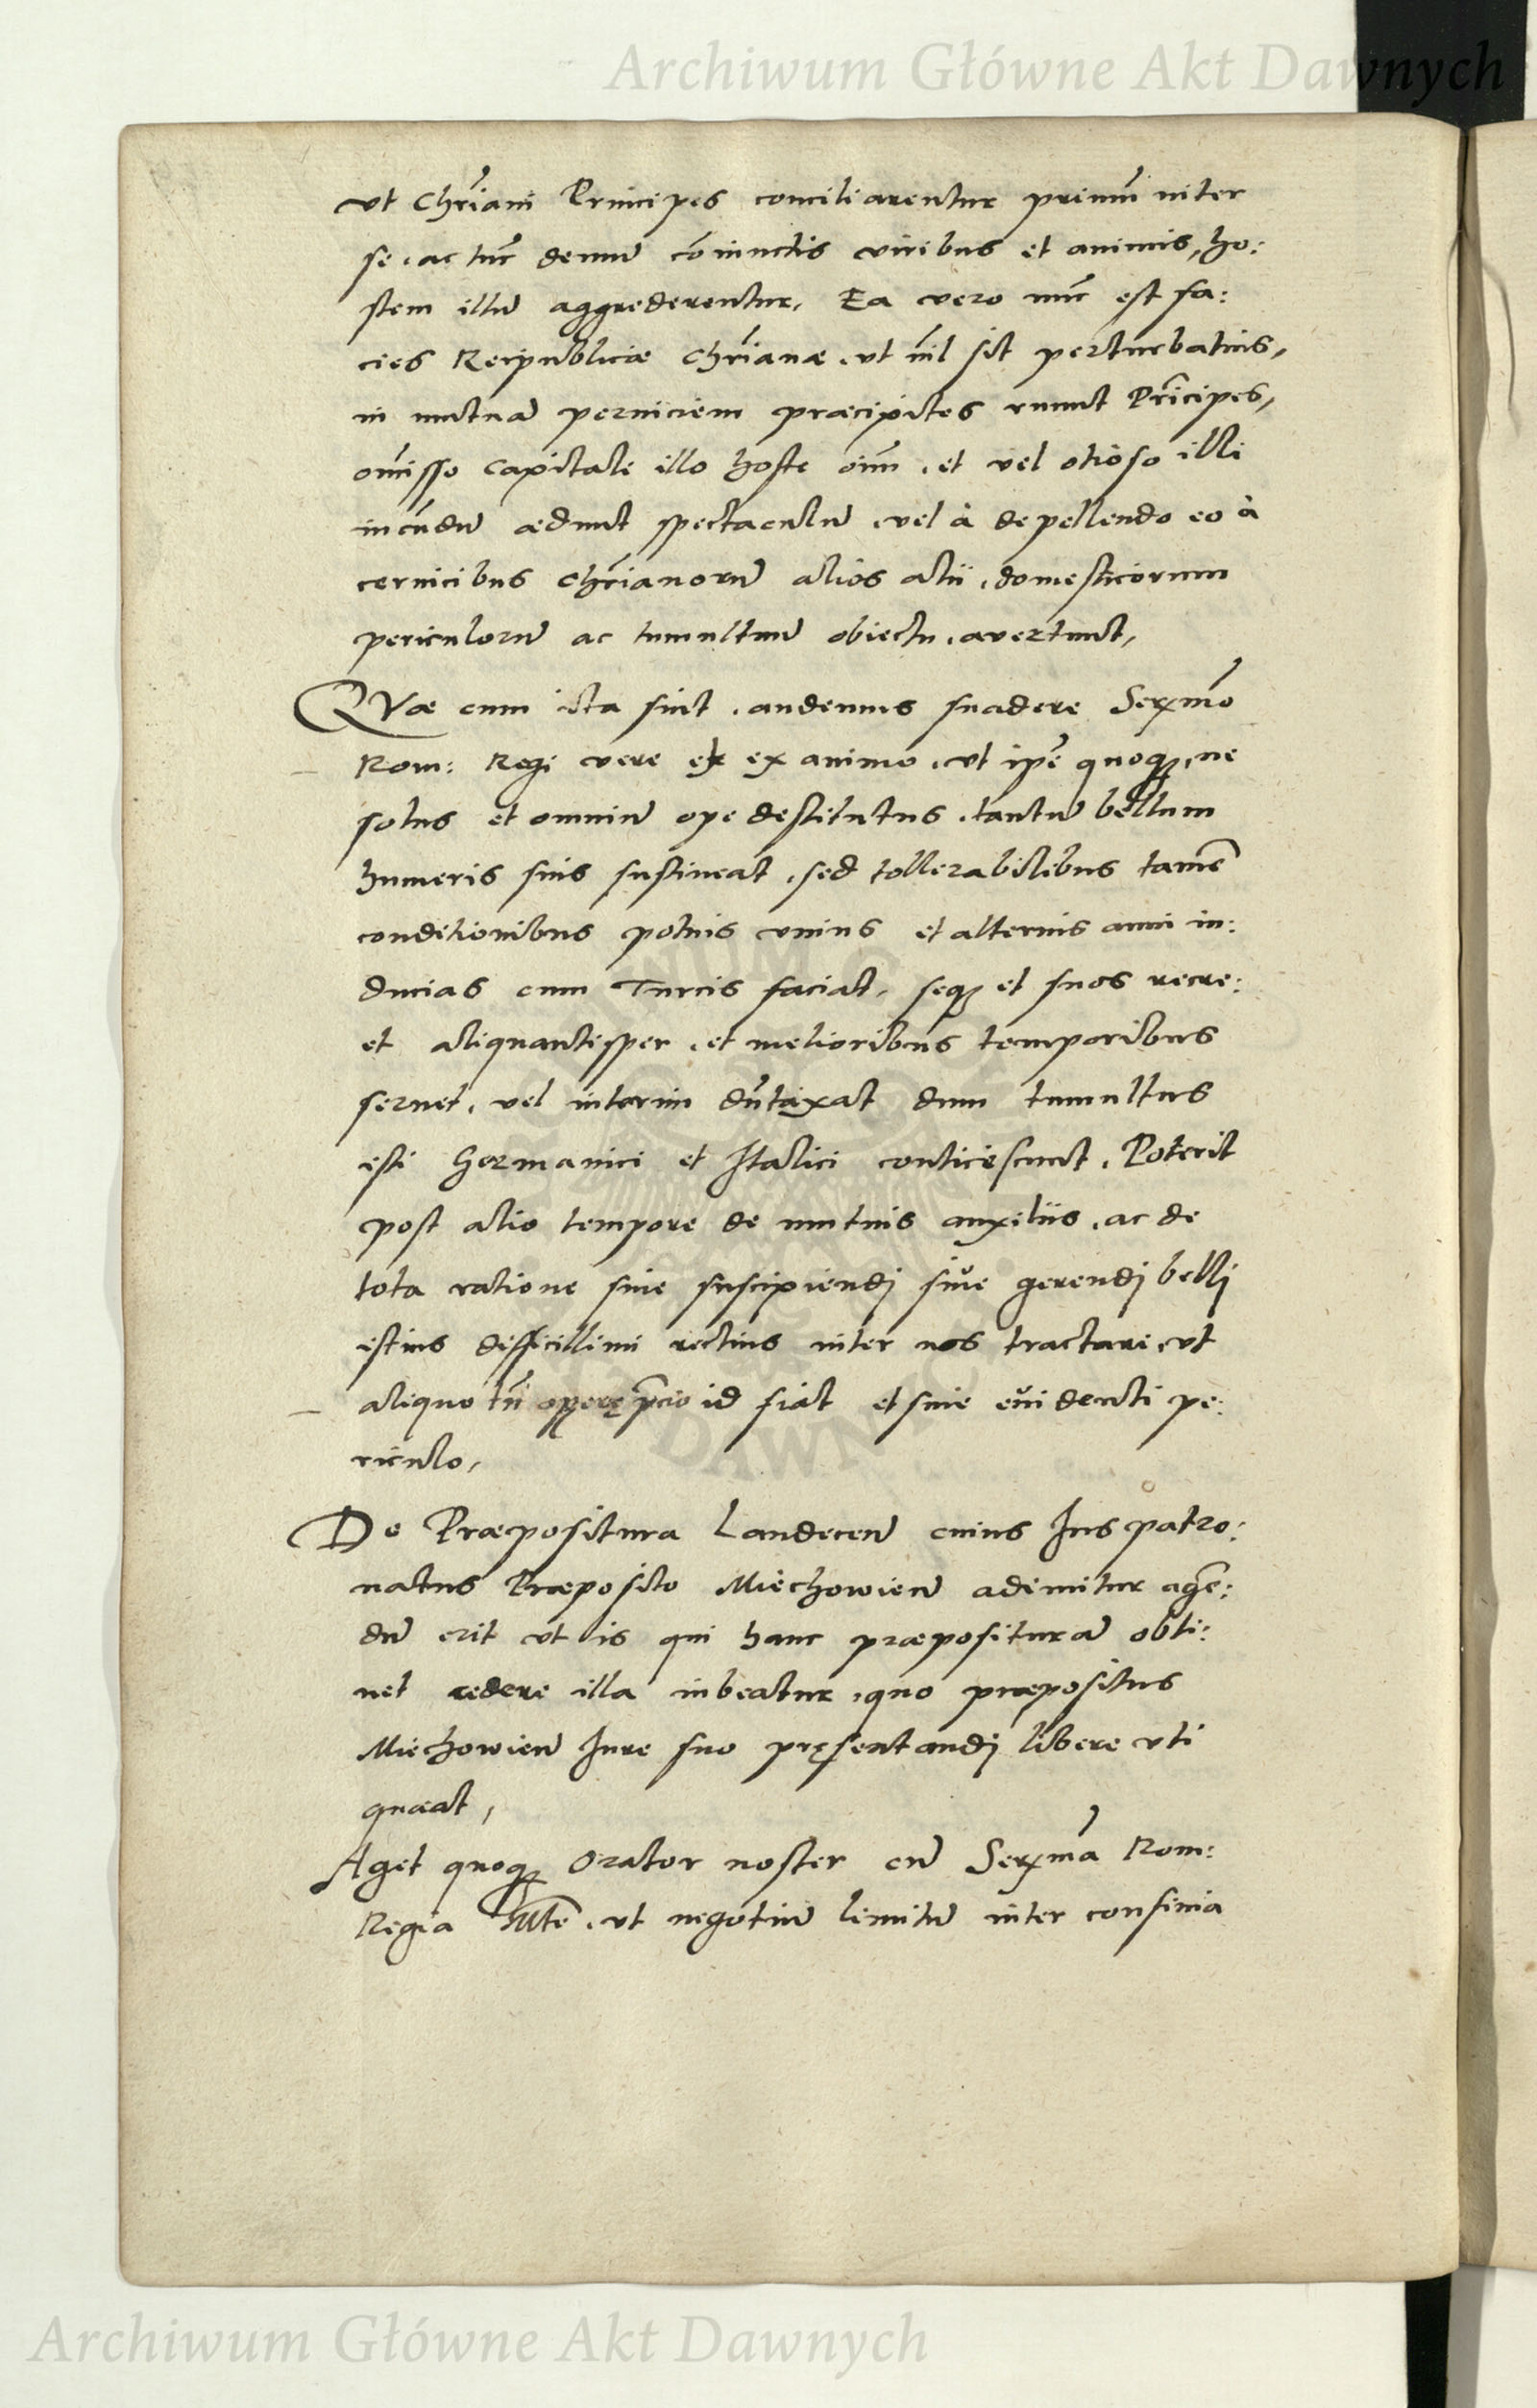 Archiwum Główne Akt Dawnych
vt Chr̃iani Principes conciliarentur primũ inter
se, ac tũc demũ cõiunctis viribus et animis, ho:
stem illũ aggrederentur, Ea vero nũc est fa:
cies Reipublicæ Chr̃ianæ, vt nil̃ sit perturbatius,
in mutuã perniciem præcipites ruunt Prĩcipes,
omisso capitale illo hoste oĩm, et vel otioso illi
iucũdũ ædunt spectaculũ, vel à depellendo eo à
ceruicibus Chr̃ianorũ alios alii, domesticorum
periculorũ ac tumultuũ obiectu, avertunt,
Quæ cum ita sint, audemus suadere Serx̃mo
Rom: Regi vere et ex animo, vt ip̃e quoq3, ne
solus et omniũ ope destitutus, tantũ bellum
humeris suis sustineat, sed tollerabilibus tamẽ
conditionibus potius vnius et alterius anni in:
ducias cum Turcis faciat, seq3 et suos recre:
et aliquantisper, et melioribus temporibus
seruet, vel interim dũtaxat dum tumultus
isti Germanici et Italici conticescunt, Poterit
post alio tempore de mutuis auxiliis, ac de
tota ratione siue suscipiendj siue gerendj bellj
istius difficillimi rectius inter nos tractari, vt
aliquo tñ operęp̃cio id fiat et sine euidenti pe:
riculo,
De Præpositura Landecen̄ cuius Ius patro:
natus Præposito Miechowien̄ adimitur agẽ:
dũ erit vt is qui hanc præpositurã obti:
net cedere illa iubeatur, quo præpositus
Miechowien̄ Iure suo pręsentandj libere vti
queat,
Aget quoq3 Orator noster cũ Serx̃ma Rom:
Regia Mte, vt negotiũ limitũ inter confinia
Archiwum Główne Akt Dawnych